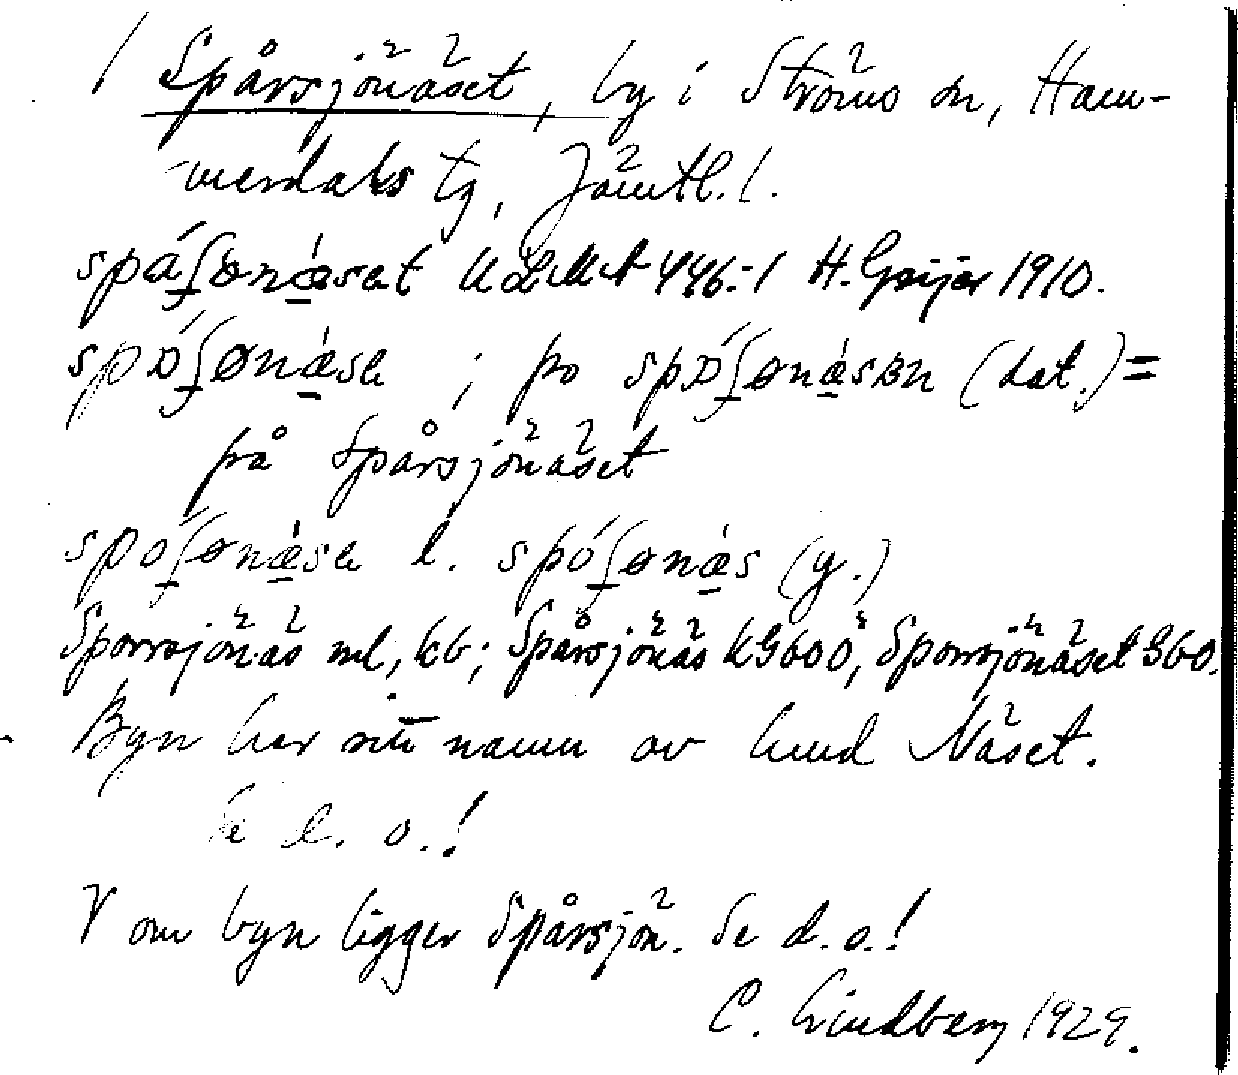 Spårsjönäset, by i Ströms sn, Ham-
merdals tg, Jämtl. l.
spáʃønæ̀set ULMA 446:1 H. Geijer 1910.
spɒ́ʃønæ̀sə ; po spɒ́ʃønæ̀sʙn (dat.) =
på Spårsjönäset
spóʃønæ̀sə l. spóʃønæ̀s (g.)
Sporrsjönäs ml, kb; Spårsjönäs kG600, Sporrsjönäset G60.
Byn har sitt namn av hmd Näset.
Se d. o.!
V om byn ligger Spårsjön. Se d. o.!
C. Lindberg 1929.